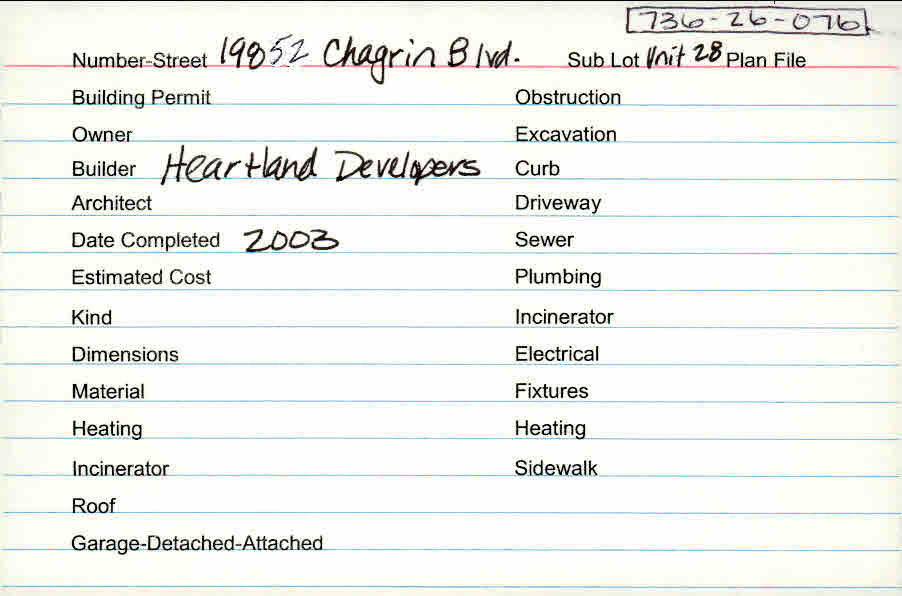 736-26-076
Number-Street 19852 Chagrin Blvd. Sub Lot Unit 28 Plan File
Building Permit Obstruction
Owner Excavation
Builder Heartland Developers Curb
Architect Driveway
Date Completed 2003 Sewer
Estimated Cost Plumbing
Kind Incinerator
Dimensions Electrical
Material Fixtures
Heating Heating
Incinerator Sidewalk
Roof
Garage-Detached-Attached